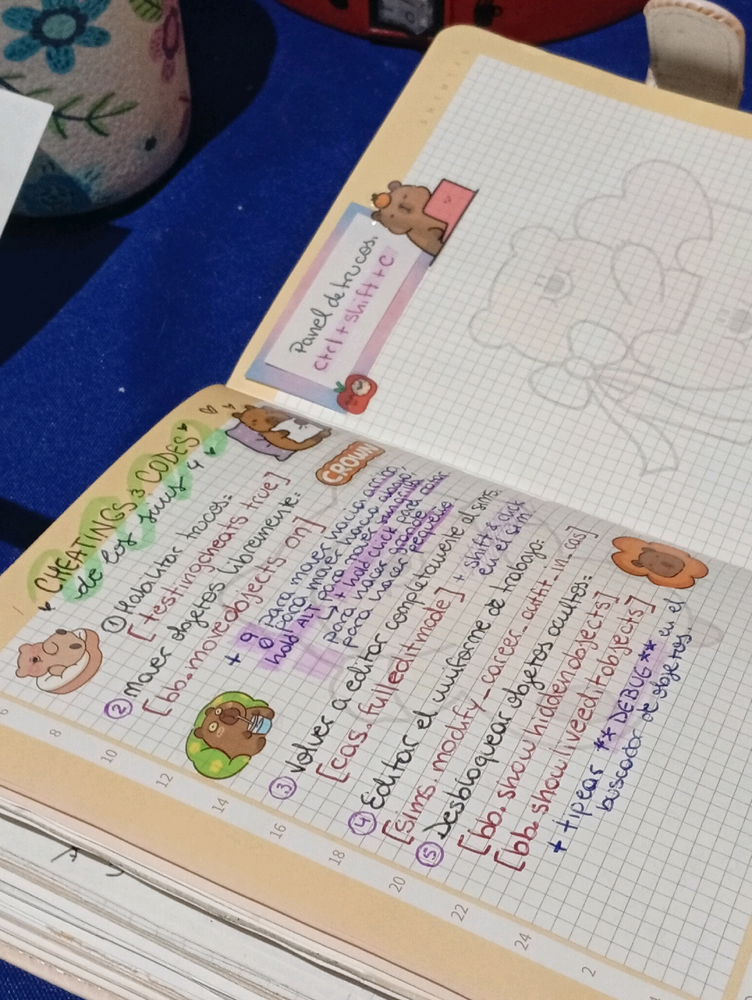 CHEATINGS & CODES
de los sims 4
① Habilitar trucos:
[testingcheats true]
② mover objetos libremente:
[bb.moveobjects on]
+ 9 para mover hacia arriba
0 para mover hacia abajo
hold ALT para mover sin grilla
↳ + hold click para rotar
para hacer grande
para hacer pequeño
③ Volver a editar completamente al sims.
[cas.fulleditmode] + shift & click
en el sim!
④ Editar el uniforme de trabajo:
[sims.modify_career_outfit_in_cas]
⑤ Desbloquear objetos ocultos:
[bb.showhiddenobjects]
[bb.showliveeditobjects]
+ tipear **DEBUG** en el
buscador de objetos.
CROWN
6
8
10
12
14
16
18
20
22
24
2
Panel de trucos.
Ctrl + shift + C